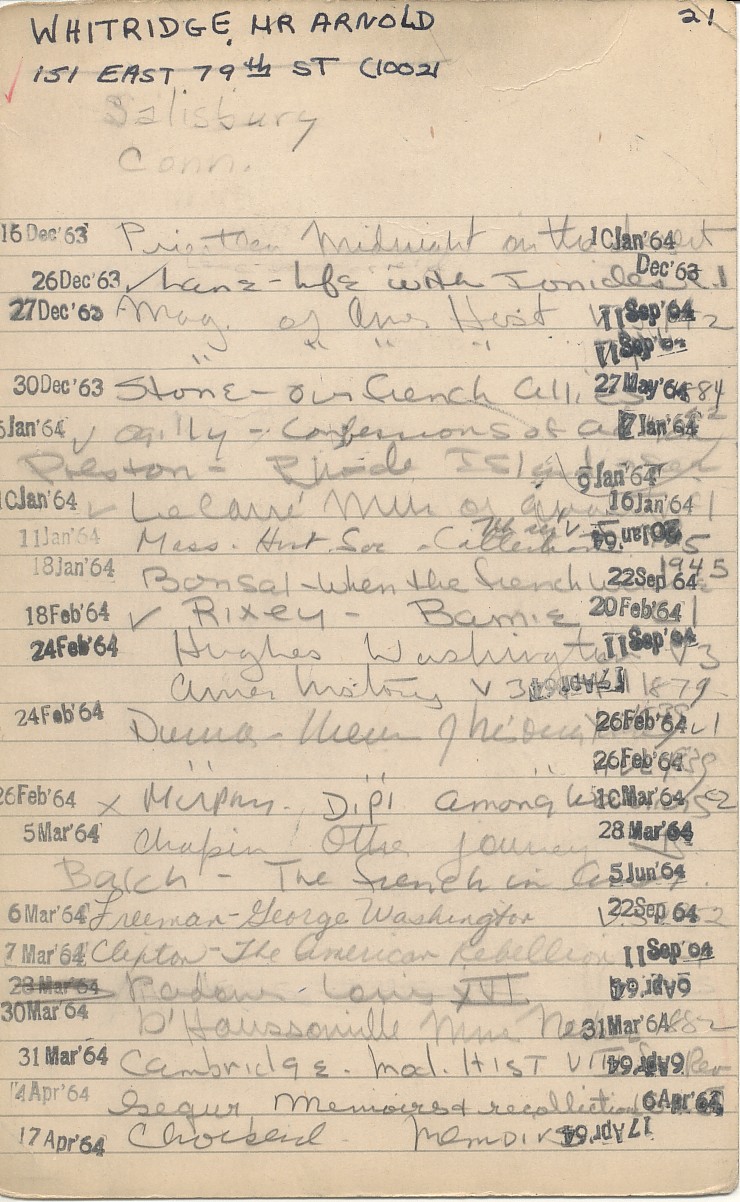 21
WHITRIDGE, MR ARNOLD
151 EAST 79th ST (10021
Salisbury
Conn.
16 Dec'63 Priestley Midnight on the Desert 10Jan'64
26Dec'63 ✓ Lane - Life with Ionides 1 Dec'63
27Dec'63 Mag. of Amer Hist V 11Sep'64 2
" " " " 11Sep'64
30Dec'63 Stone - our French Allies 27May'64 84
6Jan'64 ✓ Ogilvy - Confessions of 7Jan'64
Preston - Rhode Isl 9Jan'64
10Jan'64 ✓ LeCarré 16Jan'64 1
11Jan'64 Mass. Hist Soc. Collections 7th ser V. 20Jan'64 5
18Jan'64 Bonsal - When the French 22Sep'64 1945
18Feb'64 ✓ Rixey - Bamie 20Feb'64 1
24Feb'64 Hughes Washington V3 11Sep'64
Amer History V 3 17Apr'64 1879
24Feb'64 Dumas - Mem 26Feb'64 1
" " 26Feb'64
26Feb'64 x Murphy. Dipl among 10Mar'64 52
5Mar'64 Chapin Other journey 28Mar'64
Balch - The French in 5Jun'64
6Mar'64 Freeman - George Washington V. 22Sep'64 52
7Mar'64 Clinton - The American Rebellion 11Sep'64
28Mar'64 Padover - Louis XVI 9Apr'64
30Mar'64 D'Haussonville Mme Ne 31Mar'64 1882
31Mar'64 Cambridge. Mod. Hist V 9Apr'64 Rev
4Apr'64 Segur Memoirs & recollections 6Apr'64
17Apr'64 Choiseul Memoirs 17Apr'64